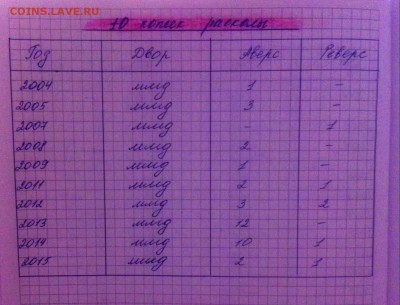 COINS.LAVE.RU
10 копеек расколы
Год Двор Аверс Реверс
2004 ммд 1 –
2005 ммд 3 –
2007 ммд – 1
2008 ммд 2 –
2009 ммд 1 –
2011 ммд 2 1
2012 ммд 3 2
2013 ммд 12 –
2014 ммд 10 1
2015 ммд 2 1